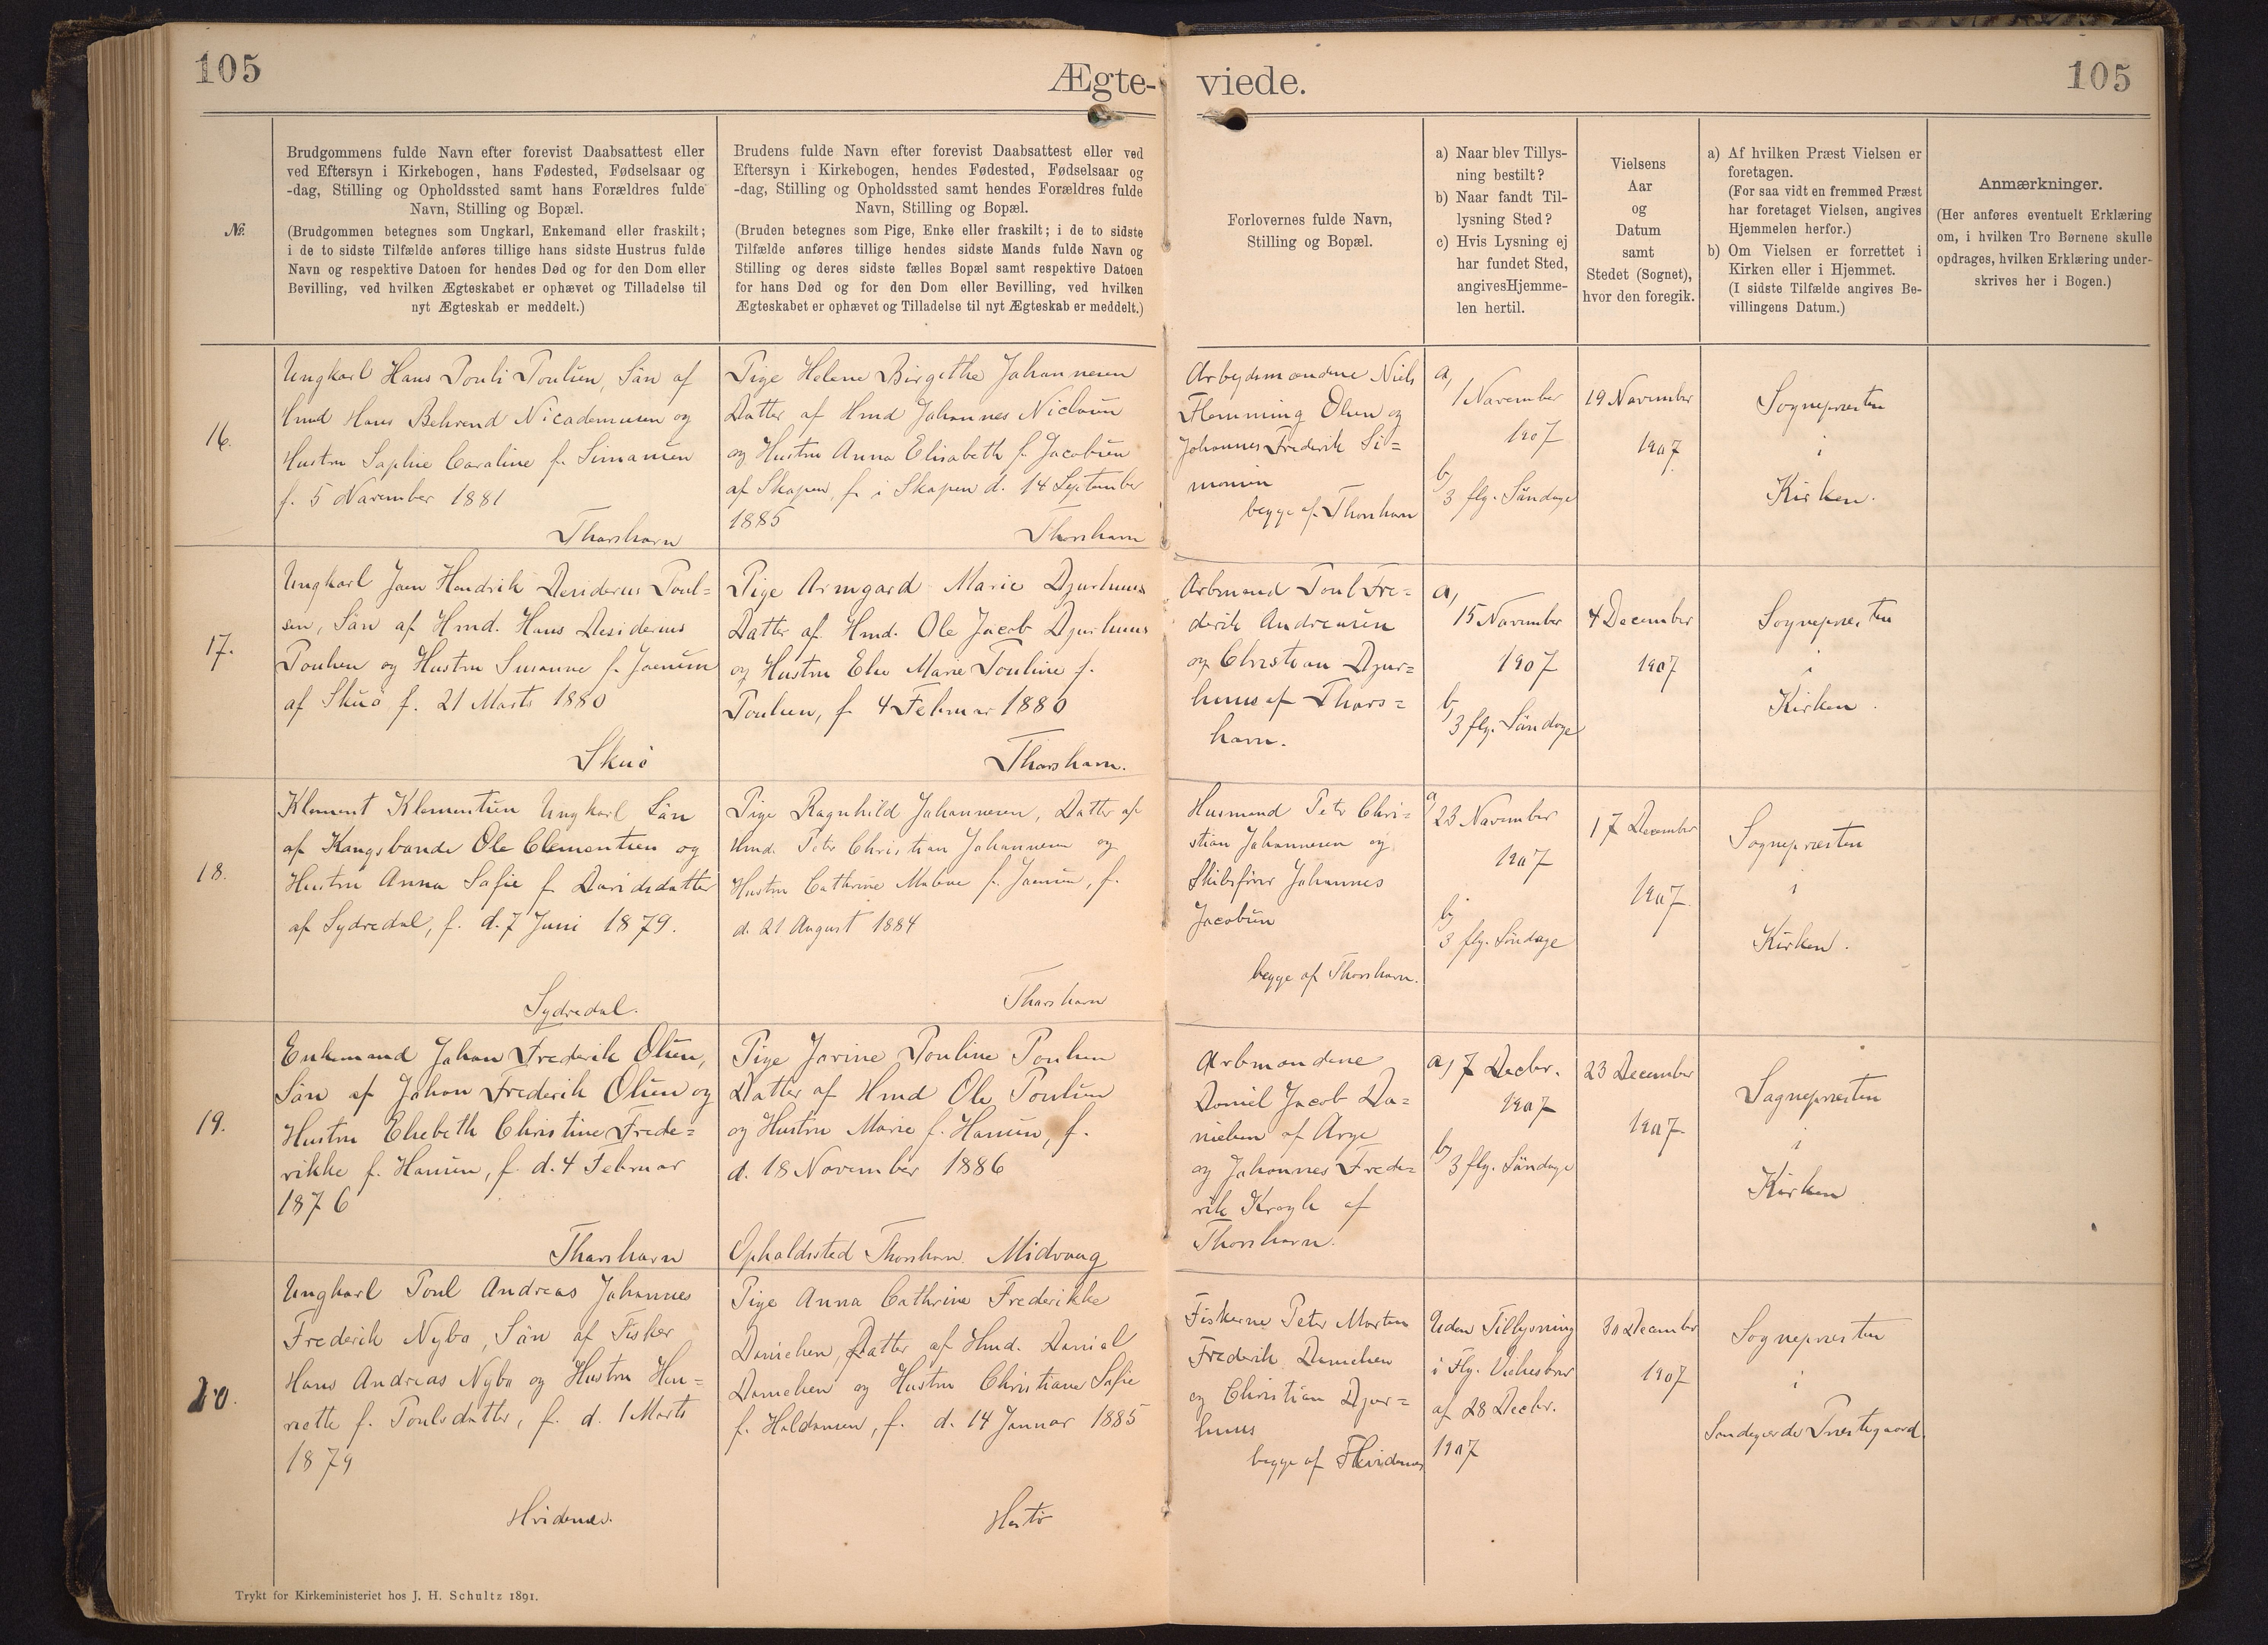 105
Ægte-
viede.
105
№.
Brudgommens fulde Navn efter forevist Daabsattest eller
ved Eftersyn i Kirkebogen, hans Fødested, Fødselsaar og
-dag, Stilling og Opholdssted samt hans Forældres fulde
Navn, Stilling og Bopæl.
(Brudgommen betegnes som Ungkarl, Enkemand eller fraskilt;
i de to sidste Tilfælde anføres tillige hans sidste Hustrus fulde
Navn og respektive Datoen for hendes Død og for den Dom eller
Bevilling, ved hvilken Ægteskabet er ophævet og Tilladelse til
nyt Ægteskab er meddelt.)
Brudens fulde Navn efter forevist Daabsattest eller ved
Eftersyn i Kirkebogen, hendes Fødested, Fødselsaar og
-dag, Stilling og Opholdssted samt hendes Forældres fulde
Navn, Stilling og Bopæl.
(Bruden betegnes som Pige, Enke eller fraskilt; i de to sidste
Tilfælde anføres tillige hendes sidste Mands fulde Navn og
Stilling og deres sidste fælles Bopæl samt respektive Datoen
for hans Død og for den Dom eller Bevilling, ved hvilken
Ægteskabet er ophævet og Tilladelse til nyt Ægteskab er meddelt.)
Forlovernes fulde Navn,
Stilling og Bopæl.
a) Naar blev Tillys-
ning bestilt?
b) Naar fandt Til-
lysning Sted?
c) Hvis Lysning ej
har fundet Sted,
angives Hjemme-
len hertil.
Vielsens
Aar
og
Datum
samt
Stedet (Sognet),
hvor den foregik.
a) Af hvilken Præst Vielsen er
foretagen.
(For saa vidt en fremmed Præst
har foretaget Vielsen, angives
Hjemmelen herfor.)
b) Om Vielsen er forrettet i
Kirken eller i Hjemmet.
(I sidste Tilfælde angives Be-
villingens Datum.)
Anmærkninger.
(Her anføres eventuelt Erklæring
om, i hvilken Tro Børnene skulle
opdrages, hvilken Erklæring under-
skrives her i Bogen.)
16.
Ungkarl Hans Pouli Poulsen, Sön af
Hmd Hans Behrend Nicodemusen og
Hustru Sophie Caroline f. Simonsen
f. 5 November 1881
Thorshavn
Pige Helene Birgithe Johannesen
Datter af Hmd Johannes Niclasen
og Hustru Anna Elisabeth f. Jacobsen
af Skopen, f. i Skopen d. 14 September
1885
Thorshavn
Arbejdsmændene Niels
Flemming Olsen og
Johannes Frederik Si=
monsen
begge af Thorshavn
a,
1 November
1907
b,
3 flg. Söndage
19 November
1907
Sognepræsten
i
Kirken.
17.
Ungkarl Joen Hendrik Desiderus Poul=
sen, Sön af Hmd. Hans Desiderus
Poulsen og Hustru Susanne f. Joensen
af Skuö f. 21 Marts 1880
Skuö
Pige Armgard Marie Djurhuus
Datter af Hmd. Ole Jacob Djurhuus
og Hustru Else Marie Pouline f.
Poulsen, f 4 Februar 1880
Thorshavn.
Arbmænd Poul Fre=
derik Andreasen
og Christian Djur=
huus af Thors=
havn.
a,
15 November
1907
b,
3 flg. Söndage
4 December
1907
Sognepræsten
i
Kirken.
18.
Klement Klementsen Ungkarl Sön
af Kongsbonde Ole Clementsen og
Hustru Anna Sofie f Davidsdatter
af Sydredal, f. d. 7 Juni 1879.
Sydredal.
Pige Ragnhild Johannesen, Datter af
Hmd. Peter Christian Johannesen og
Hustru Cathrine Malene f. Joensen, f.
d. 21 August 1884
Thorshavn
Husmand Peter Chri=
stian Johannesen og
Skibsförer Johannes
Jacobsen
begge af Thorshavn.
a,
23 November
1907
b,
3 flg. Söndage
17 December
1907
Sognepræsten
i
Kirken.
19.
Enkemand Johan Frederik Olsen,
Sön af Johan Frederik Olsen og
Hustru Elsebeth Christine Frede=
rikke f. Hansen, f. d. 4 Februar
1876
Thorshavn
Pige Jovine Pouline Poulsen
Datter af Hmd Ole Poulsen
og Hustru Marie f. Hansen, f.
d. 18 November 1886
Opholdssted Thorshavn Midvaag
Arbmændene
Daniel Jacob Da=
nielsen af Arge
og Johannes Frede=
rik Krogh af
Thorshavn.
a, 7 Decbr.
1907
b,
3 flg. Söndage
23 December
1907
Sognepræsten
i
Kirken
20.
Ungkarl Poul Andreas Johannes
Frederik Nybo, Sön af Fisker
Hans Andreas Nybo og Hustru Hen=
riette f. Poulsdatter, f. d. 1 Marts
1879
Hvidenæs.
Pige Anna Cathrine Frederikke
Danielsen, Datter af Hmd. Daniel
Danielsen og Hustru Christiane Sofie
f. Haldansen, f. d. 14 Januar 1885
Hestö
Fiskerne Peter Morten
Frederik Danielsen
og Christian Djur=
huus
begge af Hvidenæs
Uden Tillysning
i Flg. Vielsesbrev
af 28 Decbr.
1907
30 December
1907
Sognepræsten
i
Sandegærde Præstegaard.
Trykt for Kirkeministeriet hos J. H. Schultz 1891.